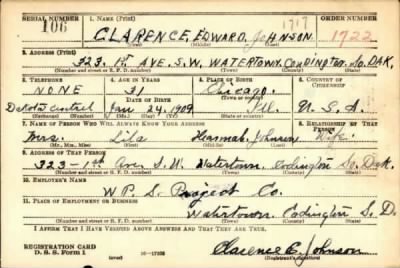 SERIAL NUMBER 1. NAME (Print) ORDER NUMBER
106 CLARENCE, EDWARD, JOHNSON 1717 1722
(First) (Middle) (Last)
2. ADDRESS (Print)
323. 1st AVE. S.W. WATERTOWN. CODINGTON. SO. DAK.
(Number and street or R. F. D. number) (Town) (County) (State)
3. TELEPHONE 4. AGE IN YEARS 5. PLACE OF BIRTH 6. COUNTRY OF CITIZENSHIP
NONE 31 Chicago.
DATE OF BIRTH
Dakota Central Jan 24, 1909 Ill. U. S. A.
(Exchange) (Number) (Mo.) (Day) (Yr.) (State or country)
7. NAME OF PERSON WHO WILL ALWAYS KNOW YOUR ADDRESS 8. RELATIONSHIP OF THAT PERSON
Mrs. Lila Hannah Johnson Wife
(Mr., Mrs., Miss) (First) (Middle) (Last)
9. ADDRESS OF THAT PERSON
323 - 1st Ave S.W. Watertown. Codington So. Dak.
(Number and street or R. F. D. number) (Town) (County) (State)
10. EMPLOYER'S NAME
Project Co.
11. PLACE OF EMPLOYMENT OR BUSINESS
Watertown. Codington S. D.
(Number and street or R. F. D. number) (Town) (County) (State)
I AFFIRM THAT I HAVE VERIFIED ABOVE ANSWERS AND THAT THEY ARE TRUE.
REGISTRATION CARD
D. S. S. Form 1 Clarence E. Johnson
(Registrant's signature)